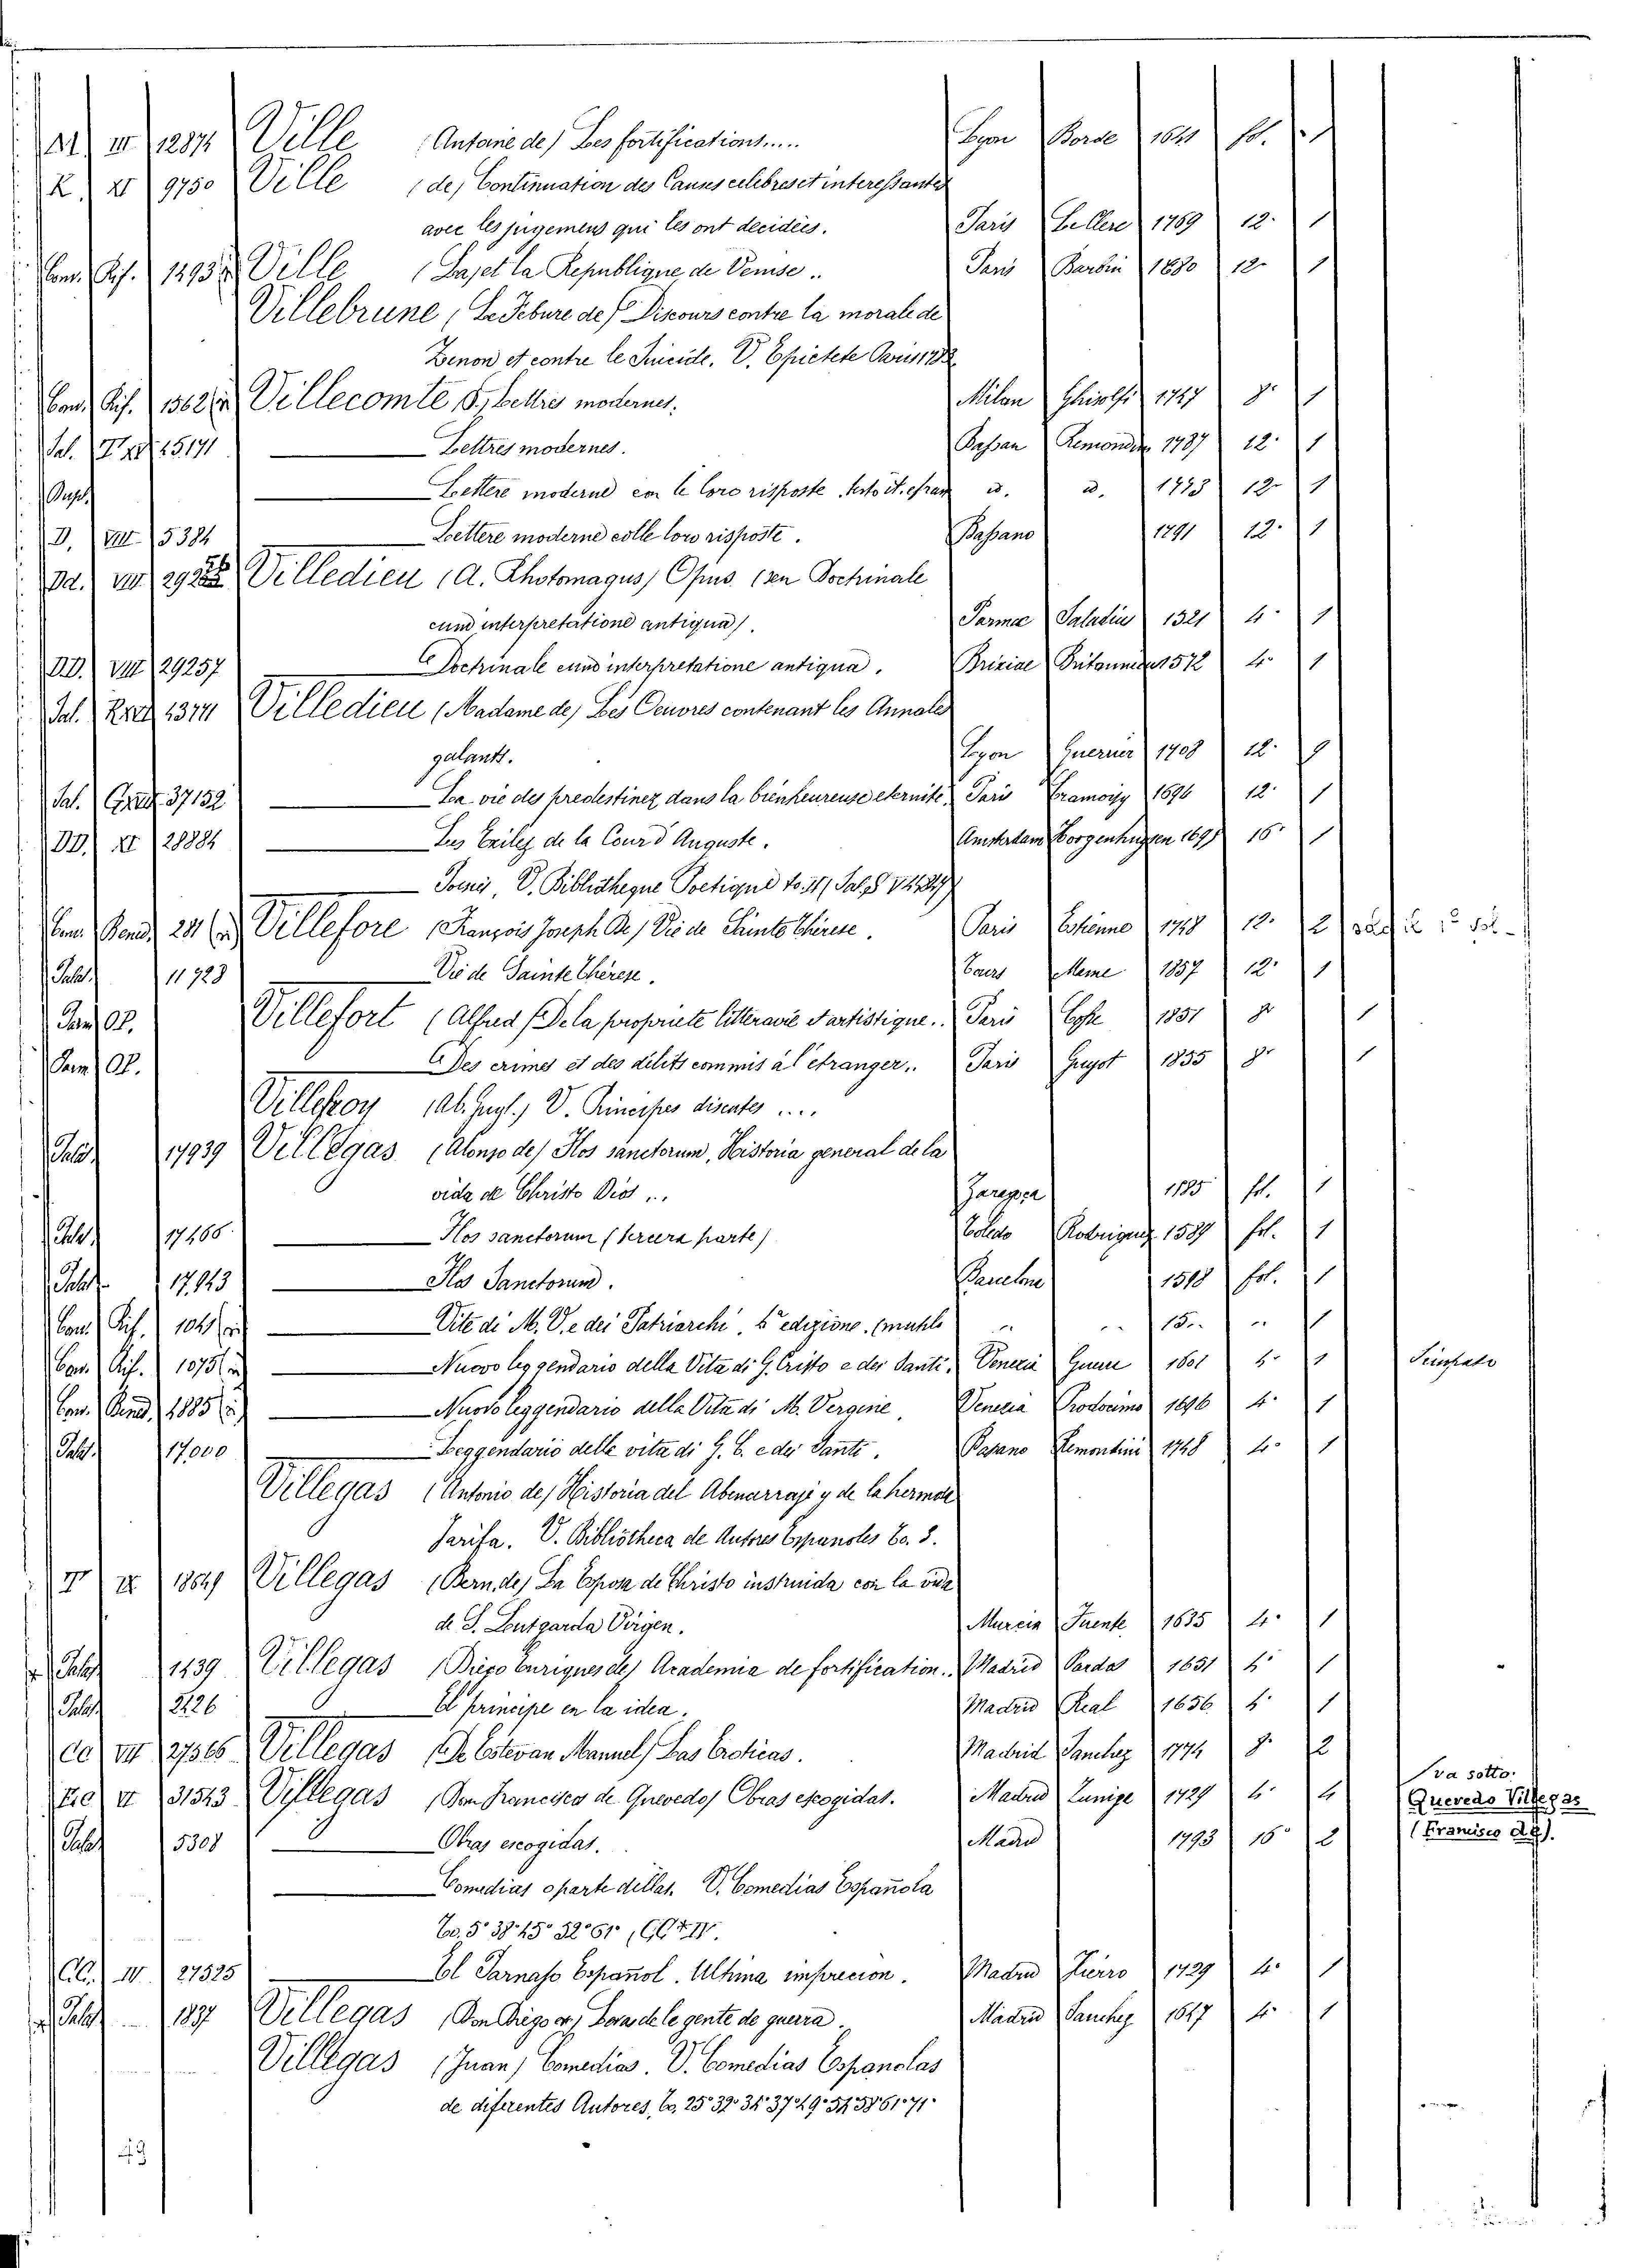 III 12874 Ville (Antoine de) Les fortifications..... Lyon Borde 1641 fol. 1
R. XI 9750 Ville (de) Continuation des Causes celebres et interessantes
avec les jugemens qui les ont decidées. Paris Cellere 1769 12° 1
Com. Rif. 1293 Ville (Saj et la Republique de Venise.. Paris Barbin 1680 12° 1
Villebrune (Le Febure de) Discours contre la morale de
Zenon et contre le Suicide. V. Epictete Paris
Com. Rif. 1562 Villecomte, Lettres modernes. Milan Ghisolfi 1747 8° 1
Sal. 15171 Lettres modernes. Bassan Remondin 1787 12° 1
Lettere moderne con le loro risposte, testo it. e fran. id. id. 12° 1
D. VIII 5384 Lettere moderne colle loro risposte. Bassano 1791 12° 1
Dd. VIII Villedieu (A. Rhotomagus) Opus seu Doctrinale
cum interpretatione antiqua). Parmae Saladius 1521 4° 1
DD. VIII 29257 Doctrinale cum interpretatione antiqua. Brixiae Britannicus 1572 4° 1
Sal. 13171 Villedieu (Madame de) Les Oeuvres contenant les Annales
galants. Lyon Guerrier 1708 12° 9
Sal. 37152 La vie des predestinez dans la bienheureuse eternité. Paris Cramoisy 1696 12° 1
DD. XI 28884 Les Exilez de la Cour d'Auguste. Amsterdam 16° 1
V. Bibliotheque Poetique
Com. Bend. 281 Villefore (François Joseph de) Vie de Sainte Thérese. Paris Estienne 1748 12° 2
Palat. 11728 Vie de Sainte Thérese. Meme 1857 12° 1
Sam. Op. Villefort (Alfred) De la propriete litteraire et artistique.. Paris Cosse 1851 8° 1
Sam. Op. Des crimes et des délits commis à l'etranger.. Paris Guyot 1855 8° 1
Villefroy (Ab. Gugl.) V. Principes discutes ....
Palat. 17939 Villegas (Alonso de) Flos sanctorum, Historia general de la
vida de Christo Dios... Zaragoza 1585 fol. 1
Palat. Flos sanctorum (tercera parte) Toledo Rodriguez 1589 fol. 1
Palat. 17,943 Flos Sanctorum. fol. 1
Com. Rif. 1041 Vite di M. V. e dei Patriarchi. 5ª edizione. (mutilo .. .. 15.. .. 1
Com. Rif. 1075 Nuovo leggendario della Vita di G. Cristo e dei Santi. Venezia Guerra 1601 4° 1 Sciupato
Com. Bend. 1885 Nuovo leggendario della Vita di M. Vergine. Venezia Prodocimo 1696 4° 1
Palat. 17,000 Leggendario delle vita di G. C. e dei Santi. Bassano Remondini 1748 4° 1
Villegas (Antonio de) Historia del Abencerraje y de la hermosa
Jarifa. V. Bibliotheca de Autores Españoles To. 3.
T IX 18649 Villegas (Bern. de) La Esposa de Christo instruida con la vida
de S. Lutgarda Virgen. Murcia Fuente 1635 4° 1
Palat. 1439 Villegas (Diego Enriques de) Academia de fortification.. Madrid Pardas 1651 4° 1
Palat. 2226 El principe en la idea. Madrid Real 1656 4° 1
Cc VIII 27566 Villegas (De Estevan Manuel) Las Eroticas. Madrid Sanchez 1774 8° 2
Ee VI 31543 Villegas (Don Francisco de Quevedo) Obras escogidas. Madrid Zunige 1729 4° 4 (va sotto:
Quevedo Villegas
(Francisco de).
Palat. 5308 Obras escogidas. Madrid 1793 16° 2
Comedias o parte dellas. V. Comedias Española
To. 5° 38° 45° 52° 61°
Cc. IV 27525 El Parnaso Español. Ultima imprecion. Madrid Fierro 1729 4° 1
Palat. 1837 Villegas (Don Diego er) Leva de la gente de guerra. Madrid Sanchez 1647 4° 1
Villegas (Juan) Comedias. V. Comedias Espanolas
de diferentes Autores, To. 25° 32° 34° 37° 49° 54° 58° 61° 71°
43